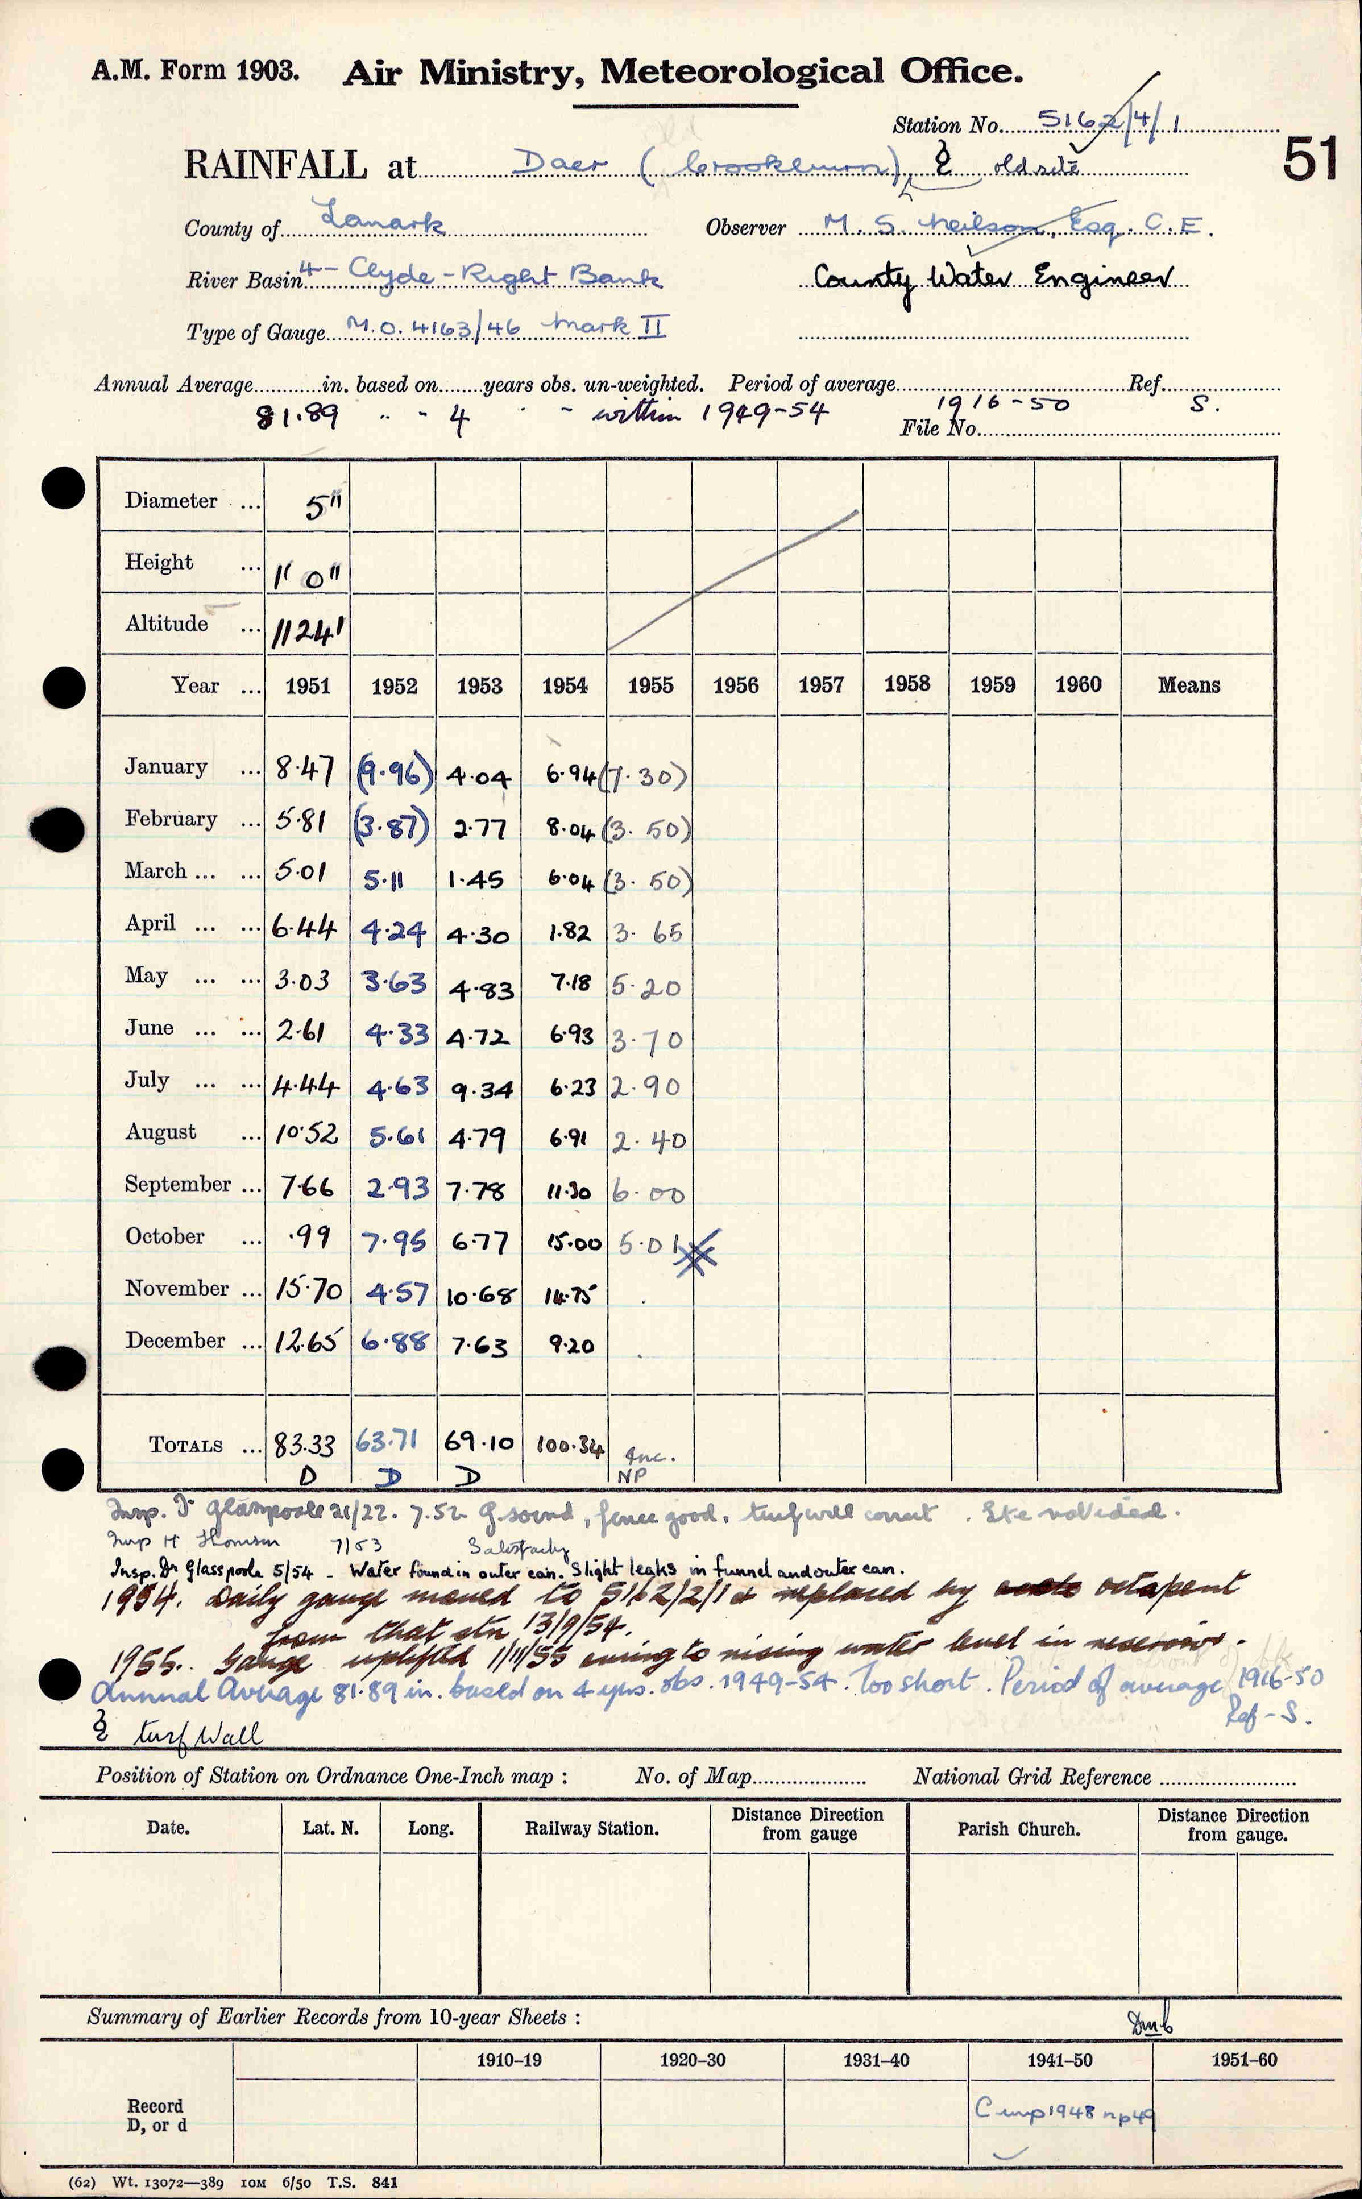 A.M. Form 1903. Air Ministry, Meteorological Office.
Station No. 5162/4/1
RAINFALL at Daer (Crookburn), & old site
51
County of Lanark Observer M. S. Neilson, Esq. C.E.
River Basin 4 - Clyde - Right Bank County Water Engineer
Type of Gauge M.O. 4163/46 Mark II
Annual Average in. based on years obs. un-weighted. Period of average Ref.
81.89 " " 4 " " within 1949-54 1916-50 S.
File No.
Diameter ... 5"
Height ... 1' 0"
Altitude ... 1124'
Year ... 1951 1952 1953 1954 1955 1956 1957 1958 1959 1960 Means
January ... 8.47 (9.96) 4.04 6.94 (7.30)
February ... 5.81 (3.87) 2.77 8.04 (3.50)
March ... ... 5.01 5.11 1.45 6.04 (3.50)
April ... ... 6.44 4.24 4.30 1.82 3.65
May ... ... 3.03 3.63 4.83 7.18 5.20
June ... ... 2.61 4.33 4.72 6.93 3.70
July ... ... 4.44 4.63 9.34 6.23 2.90
August ... 10.52 5.61 4.79 6.91 2.40
September ... 7.66 2.93 7.78 11.30 6.00
October ... .99 7.95 6.77 15.00 5.01
November ... 15.70 4.57 10.68 14.75 .
December ... 12.65 6.88 7.63 9.20 .
TOTALS ... 83.33 63.71 69.10 100.34 Inc.
D D D NP
Insp. Dr Glasspoole 21/22. 7.52 G. sound, fence good, turf wall correct.
Insp H Thomson 7/53 Satisfactory
Insp. Dr Glasspoole 5/54 - Water found in outer can. Slight leaks in funnel and outer can.
1954. Daily gauge moved to 5162/2/1 & replaced by octapent
from that stn 13/9/54.
1955. Gauge uplifted 1/11/55 owing to rising water level in reservoir.
Annual Average 81.89 in. based on 4 yrs. obs. 1949-54. Too short. Period of average 1916-50
Ref - S.
& turf Wall
Position of Station on Ordnance One-Inch map : No. of Map National Grid Reference
Date. Lat. N. Long. Railway Station. Distance Direction from gauge Parish Church. Distance Direction from gauge.
Summary of Earlier Records from 10-year Sheets :
1910–19 1920–30 1931–40 1941–50 1951–60
Record
D, or d
1948 np49
(62) Wt. 13072—389 10M 6/50 T.S. 841